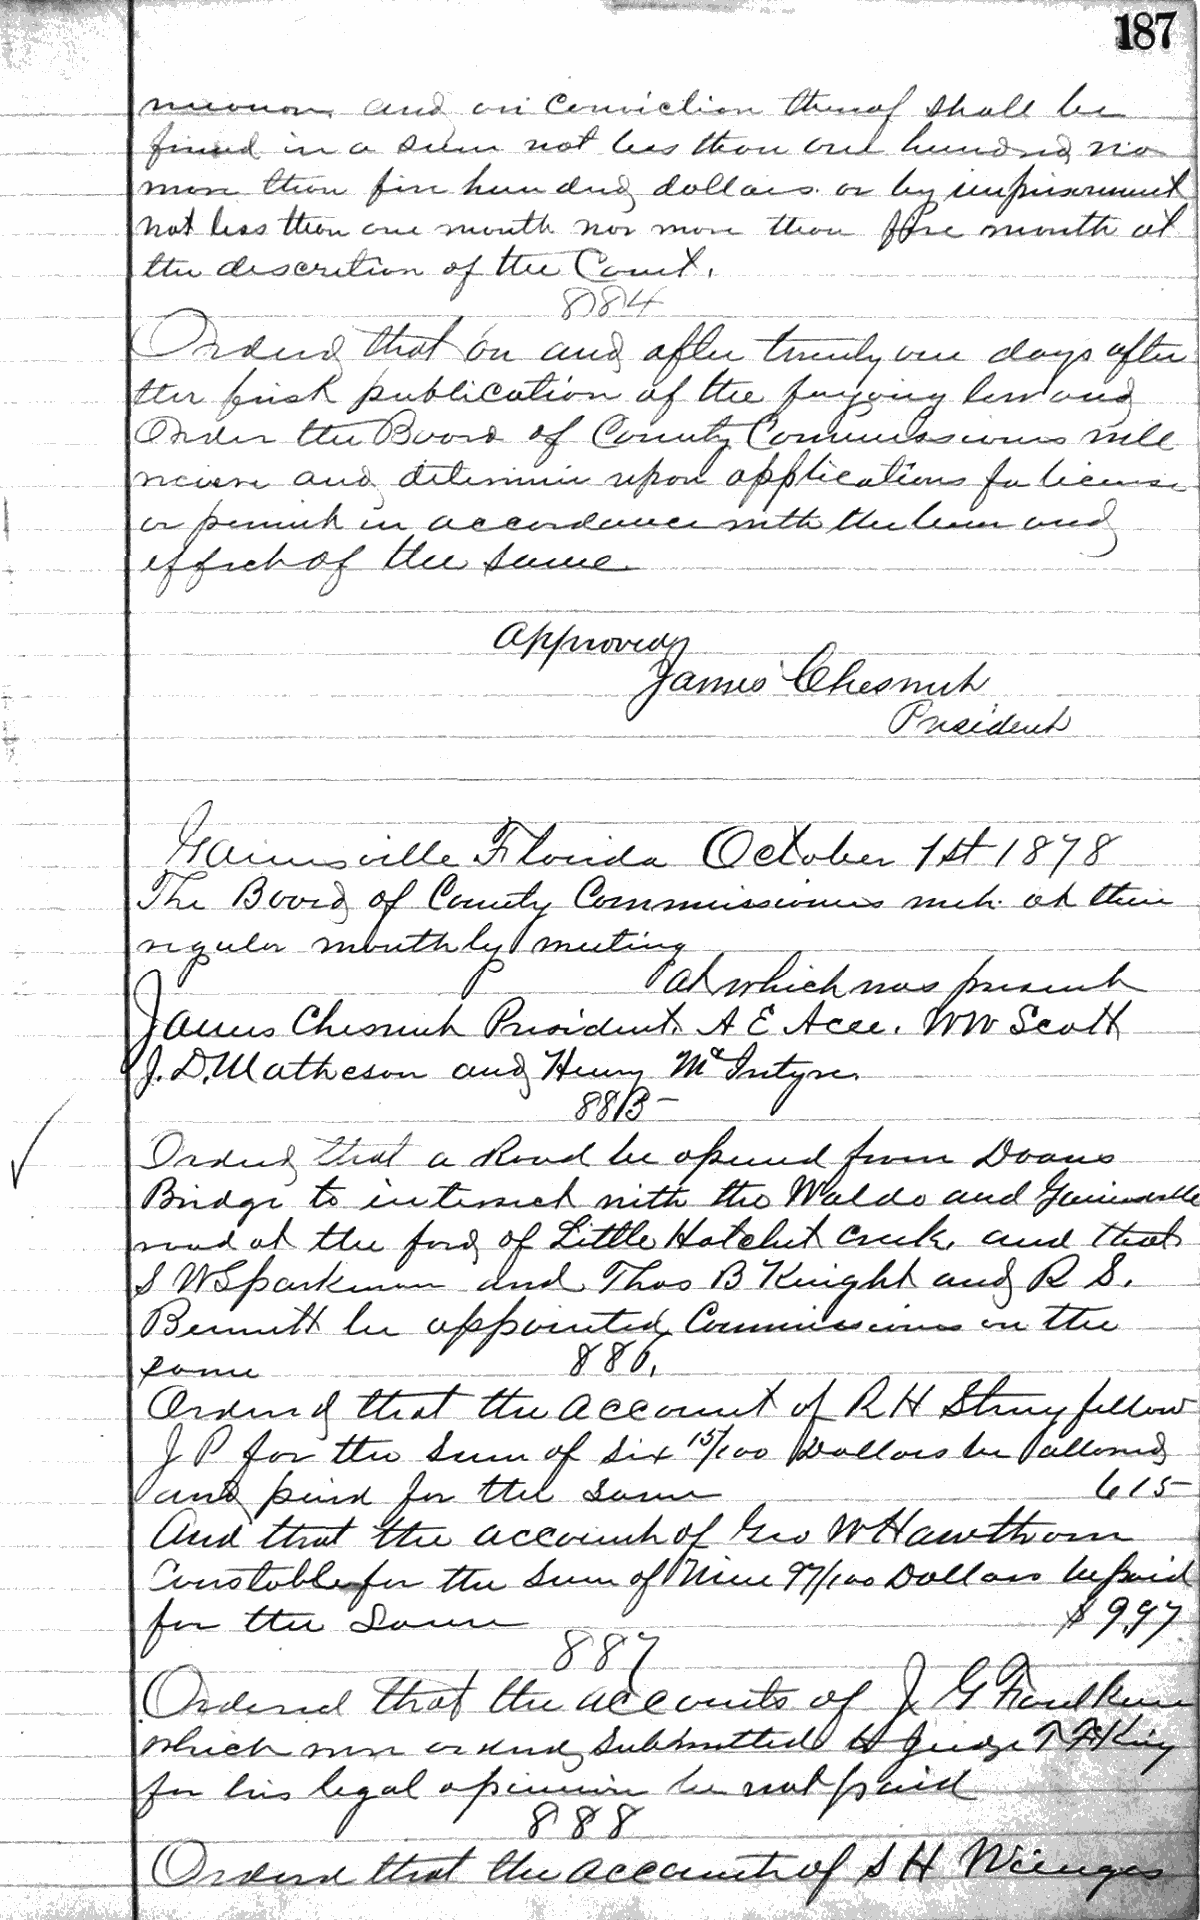 187
and on conviction thereof shall be
fined in a sum not less than one hundred nor
more than five hundred dollars or by imprisonment
not less than one month nor more than five month at
the discretion of the Court.
884
Ordered that on and after twenty one days after
the first publication of the forgoing law and
Order the Board of County Commissioners will
receive and determine upon applications for license
or permit in accordance with the law and
effect of the same
Approved
James Chesnut
President
Gainesville Florida October 1st 1878
The Board of County Commissioners met at their
regular monthly meeting
at which was present
James Chesnut President. A E Acee. W W Scott
J. D. Matheson and Henry McIntyre.
885
Ordered that a Road be opened from Doans
Bridge to intersect with the Waldo and Gainesville
road at the ford of Little Hatchet creek, and that
S W Sparkman and Thos B Knight and R S.
Bennett be appointed Commissioners on the
same
886.
Ordered that the account of R H Stringfellow
J P for the Sum of Six 15/100 Dollars be allowed
and paid for the same 6 15
And that the account of Geo W Hawthorn
Constable for the Sum of Nine 97/100 Dollars be paid
for the Same $ 9.97
887
Ordered that the accounts of J G Faulkner
which were ordered submitted to Judge T F King
for his legal opinion be not paid
888
Ordered that the account of S H Wienges